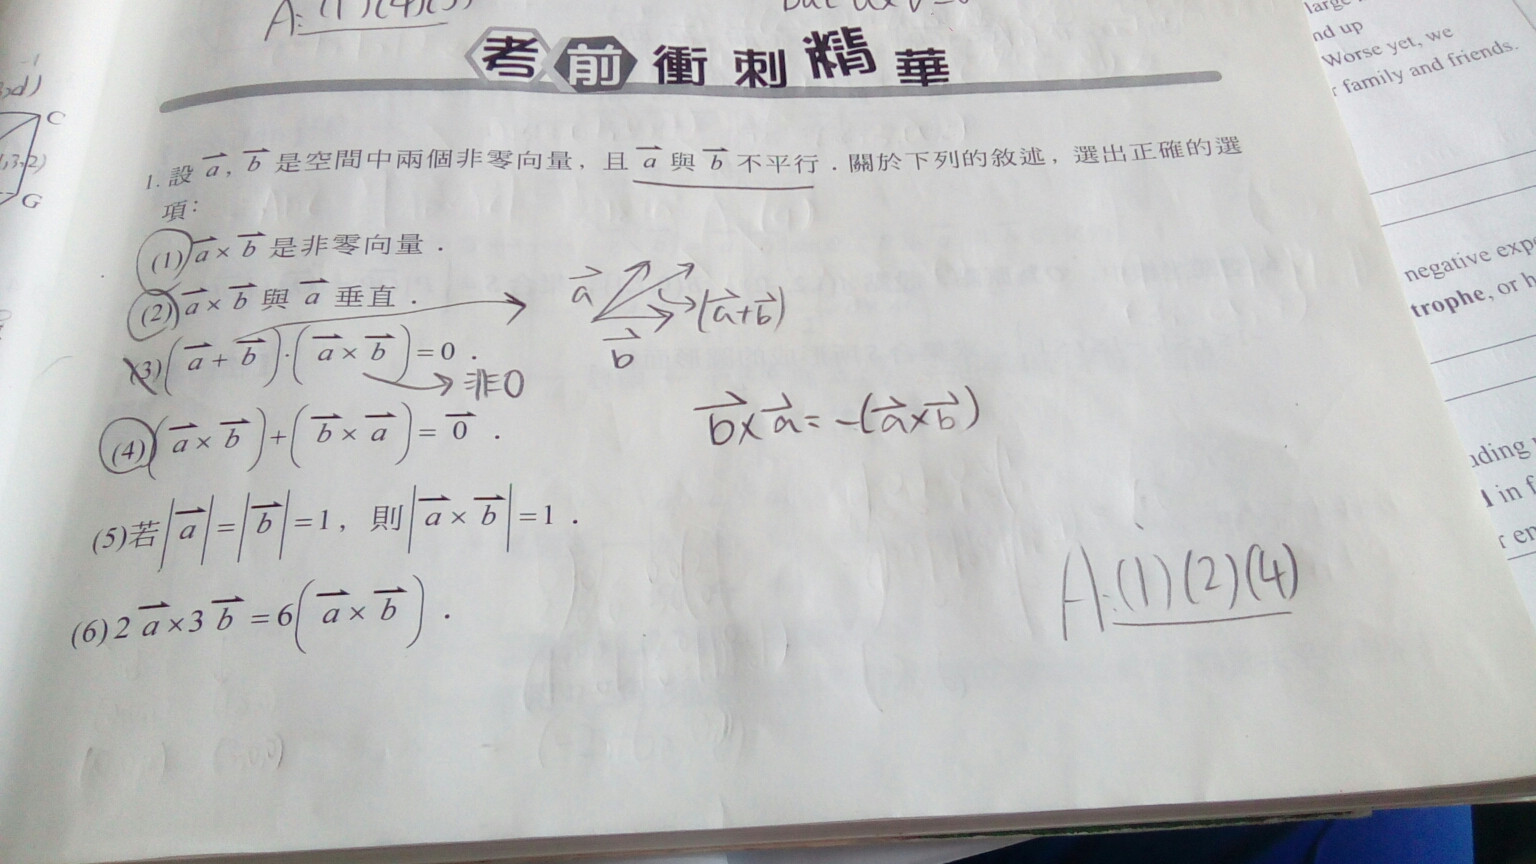 A: (1)(4)
考前衝刺精華
1. 設 a⃗, b⃗ 是空間中兩個非零向量, 且 a⃗ 與 b⃗ 不平行. 關於下列的敘述, 選出正確的選
項:
(1) a⃗ × b⃗ 是非零向量.
(2) a⃗ × b⃗ 與 a⃗ 垂直.
a⃗
(a⃗+b⃗)
b⃗
(3) (a⃗ + b⃗)·(a⃗ × b⃗) = 0.
非0
(4) (a⃗ × b⃗) + (b⃗ × a⃗) = 0⃗.
b⃗×a⃗=-(a⃗×b⃗)
(5) 若 |a⃗| = |b⃗| = 1, 則 |a⃗ × b⃗| = 1.
(6) 2a⃗ × 3b⃗ = 6(a⃗ × b⃗).
A: (1)(2)(4)
C
G
large
nd up
Worse yet, we
r family and friends.
negative expe
trophe, or h
in f